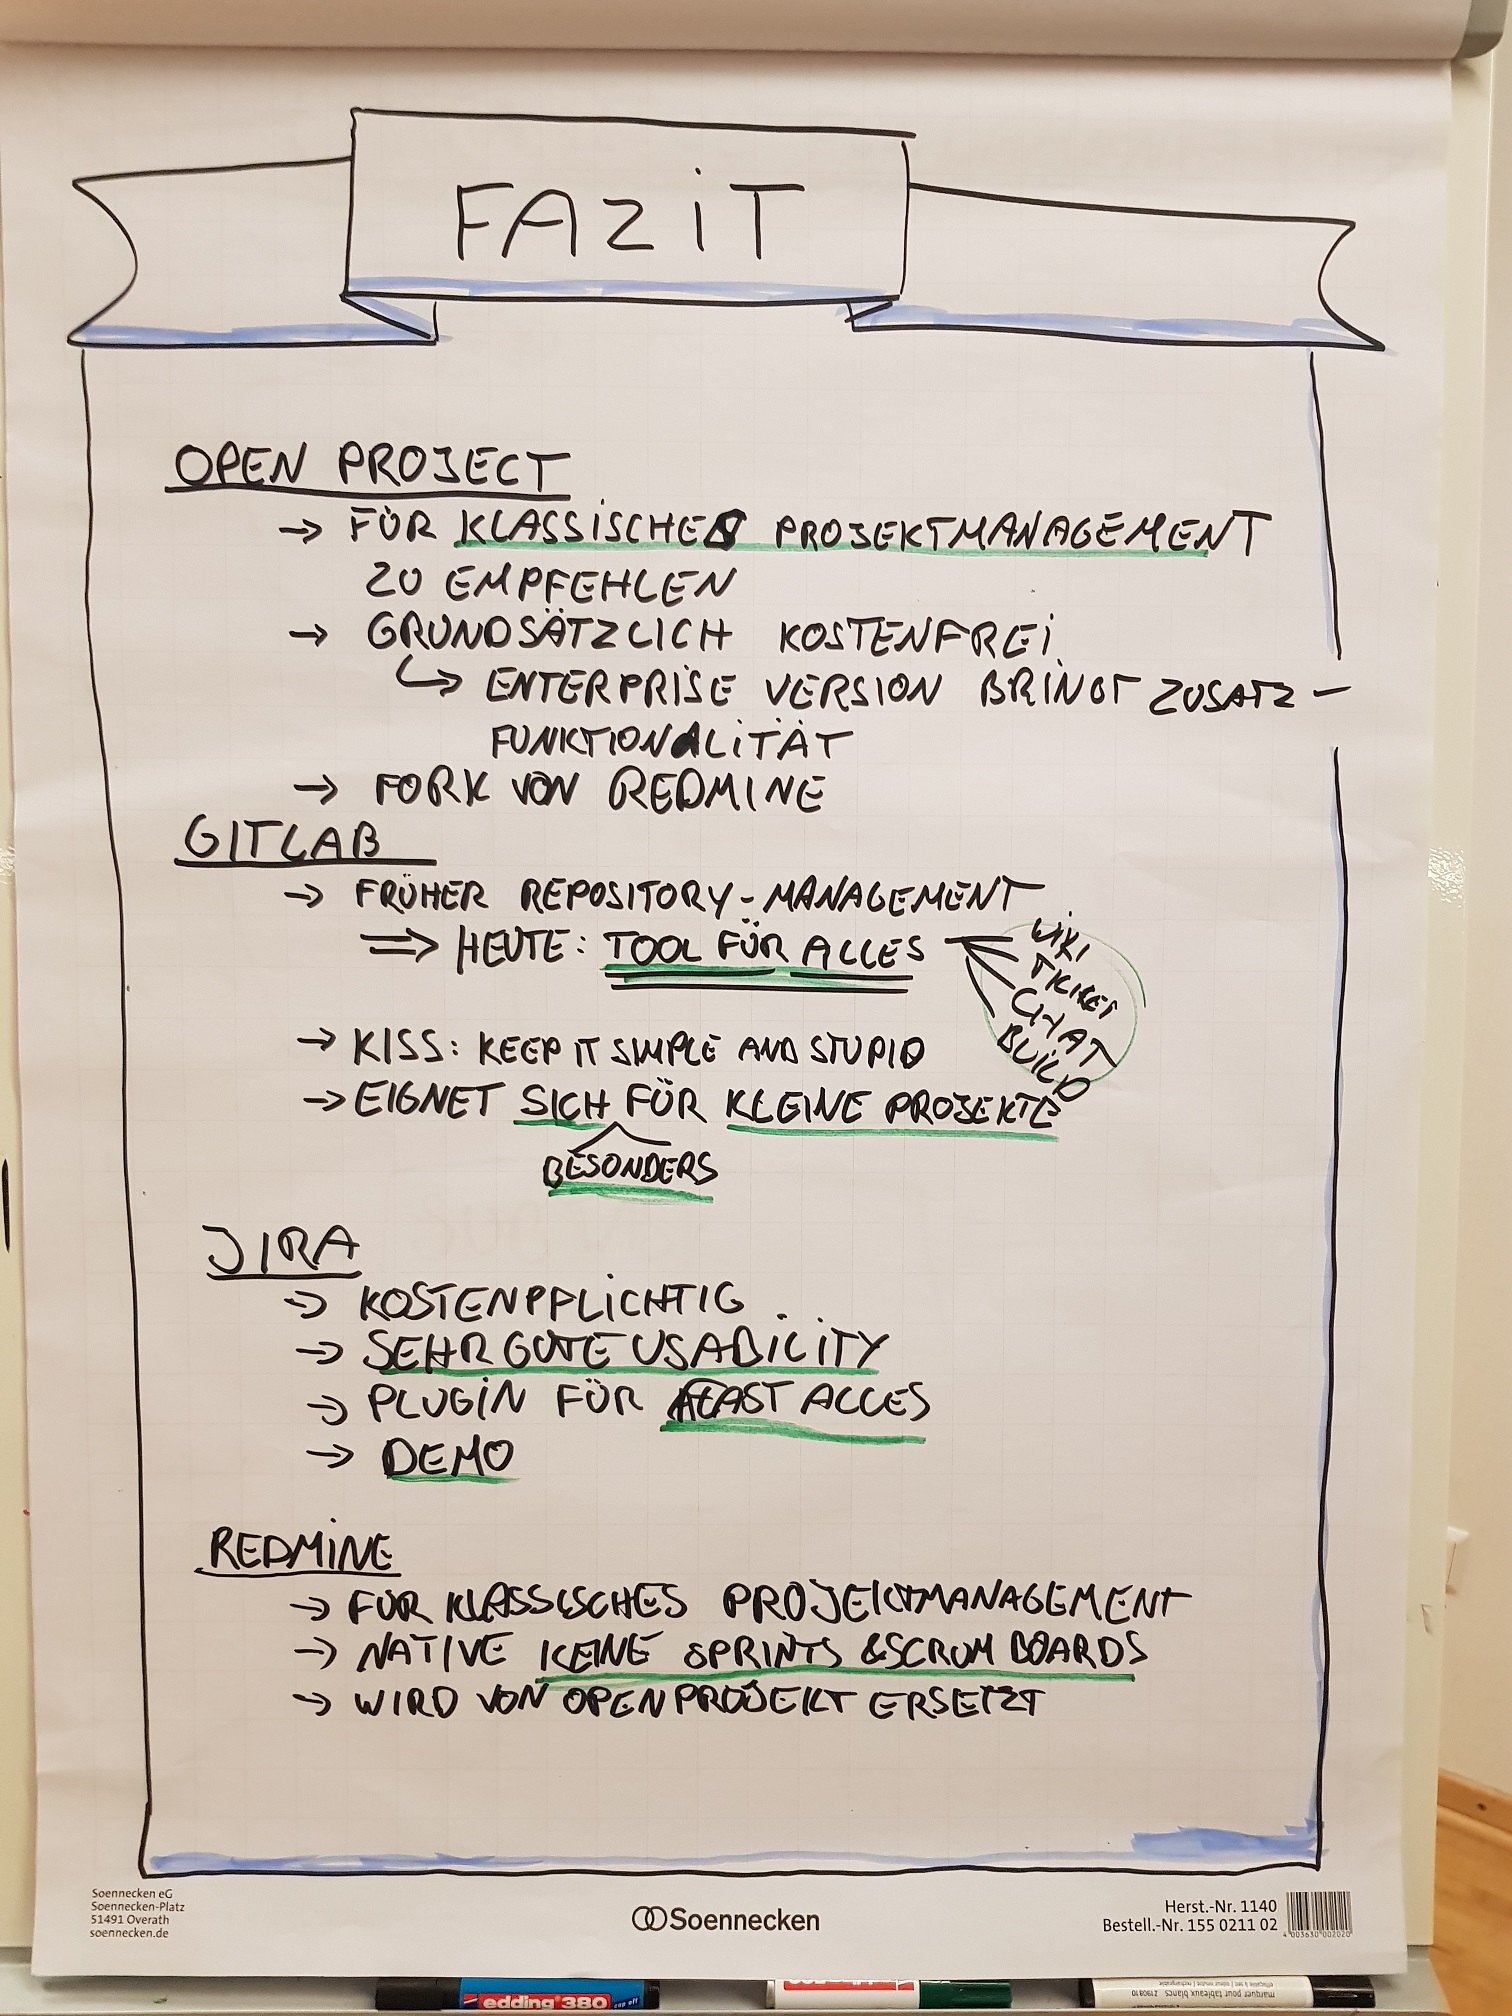 FAZiT
OPEN PROJECT
→ FÜR KLASSiSCHES PROJEKTMANAGEMENT
ZU EMPFEHLEN
→ GRUNDSÄTZLICH KOSTENFREi
↳ ENTERPRiSE VERSION BRINGT ZUSATZ-
FUNKTIONALiTÄT
→ FORK VON REDMINE
GITLAB
→ FRÜHER REPOSITORY-MANAGEMENT
⇒ HEUTE: TOOL FÜR ALLES
WiKi
TICKET
CHAT
BUILD
→ KISS: KEEP IT SIMPLE AND STUPID
→ EIGNET SICH FÜR KLEINE PROJEKTE
BESONDERS
JIRA
→ KOSTENPFLiCHTIG
→ SEHR GUTE USABiLiTY
→ PLUGiN FÜR FAST ALLES
→ DEMO
REDMiNE
→ FÜR KLASSISCHES PROJEKTMANAGEMENT
→ NATIVE KEINE SPRINTS & SCRUM BOARDS
→ WIRD VON OPENPROJEKT ERSETZT
Soennecken eG
Soennecken-Platz
51491 Overath
soennecken.de
Soennecken
Herst.-Nr. 1140
Bestell.-Nr. 155 0211 02
4 003630 002020
edding 380 cap off
marquer pour tableaux blancs